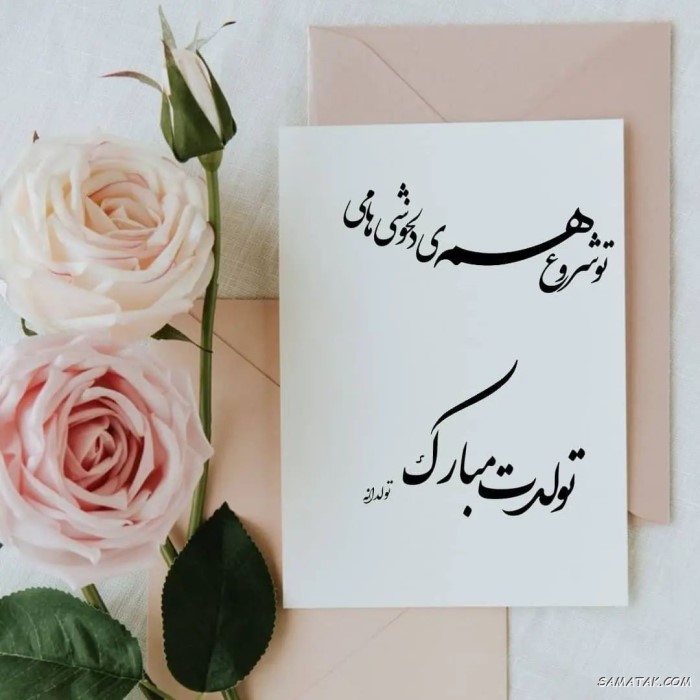 تو شروع همه‌ی دلخوشی هامی
تولدت مبارک
تولدانه
SAMATAK.COM